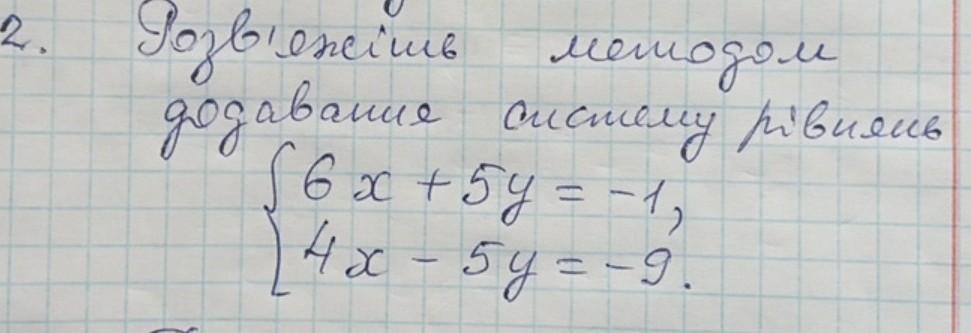 2. Розв'яжіть методом
додавання систему рівнянь
6x + 5y = -1,
4x - 5y = -9.